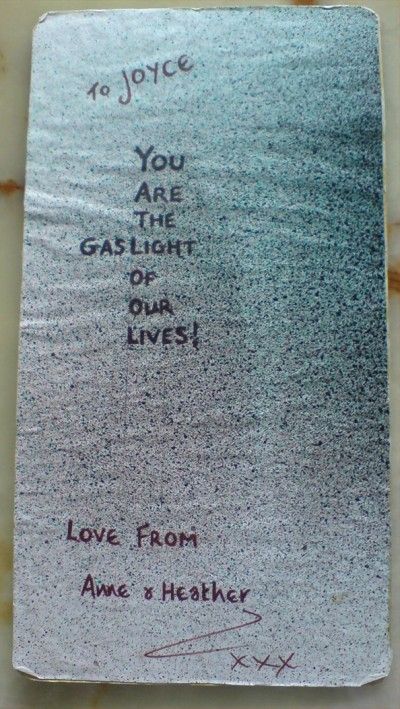 To JOYCE
YOU
ARE
THE
GASLIGHT
OF
OUR
LIVES!
LOVE FROM
Anne & Heather
xxx